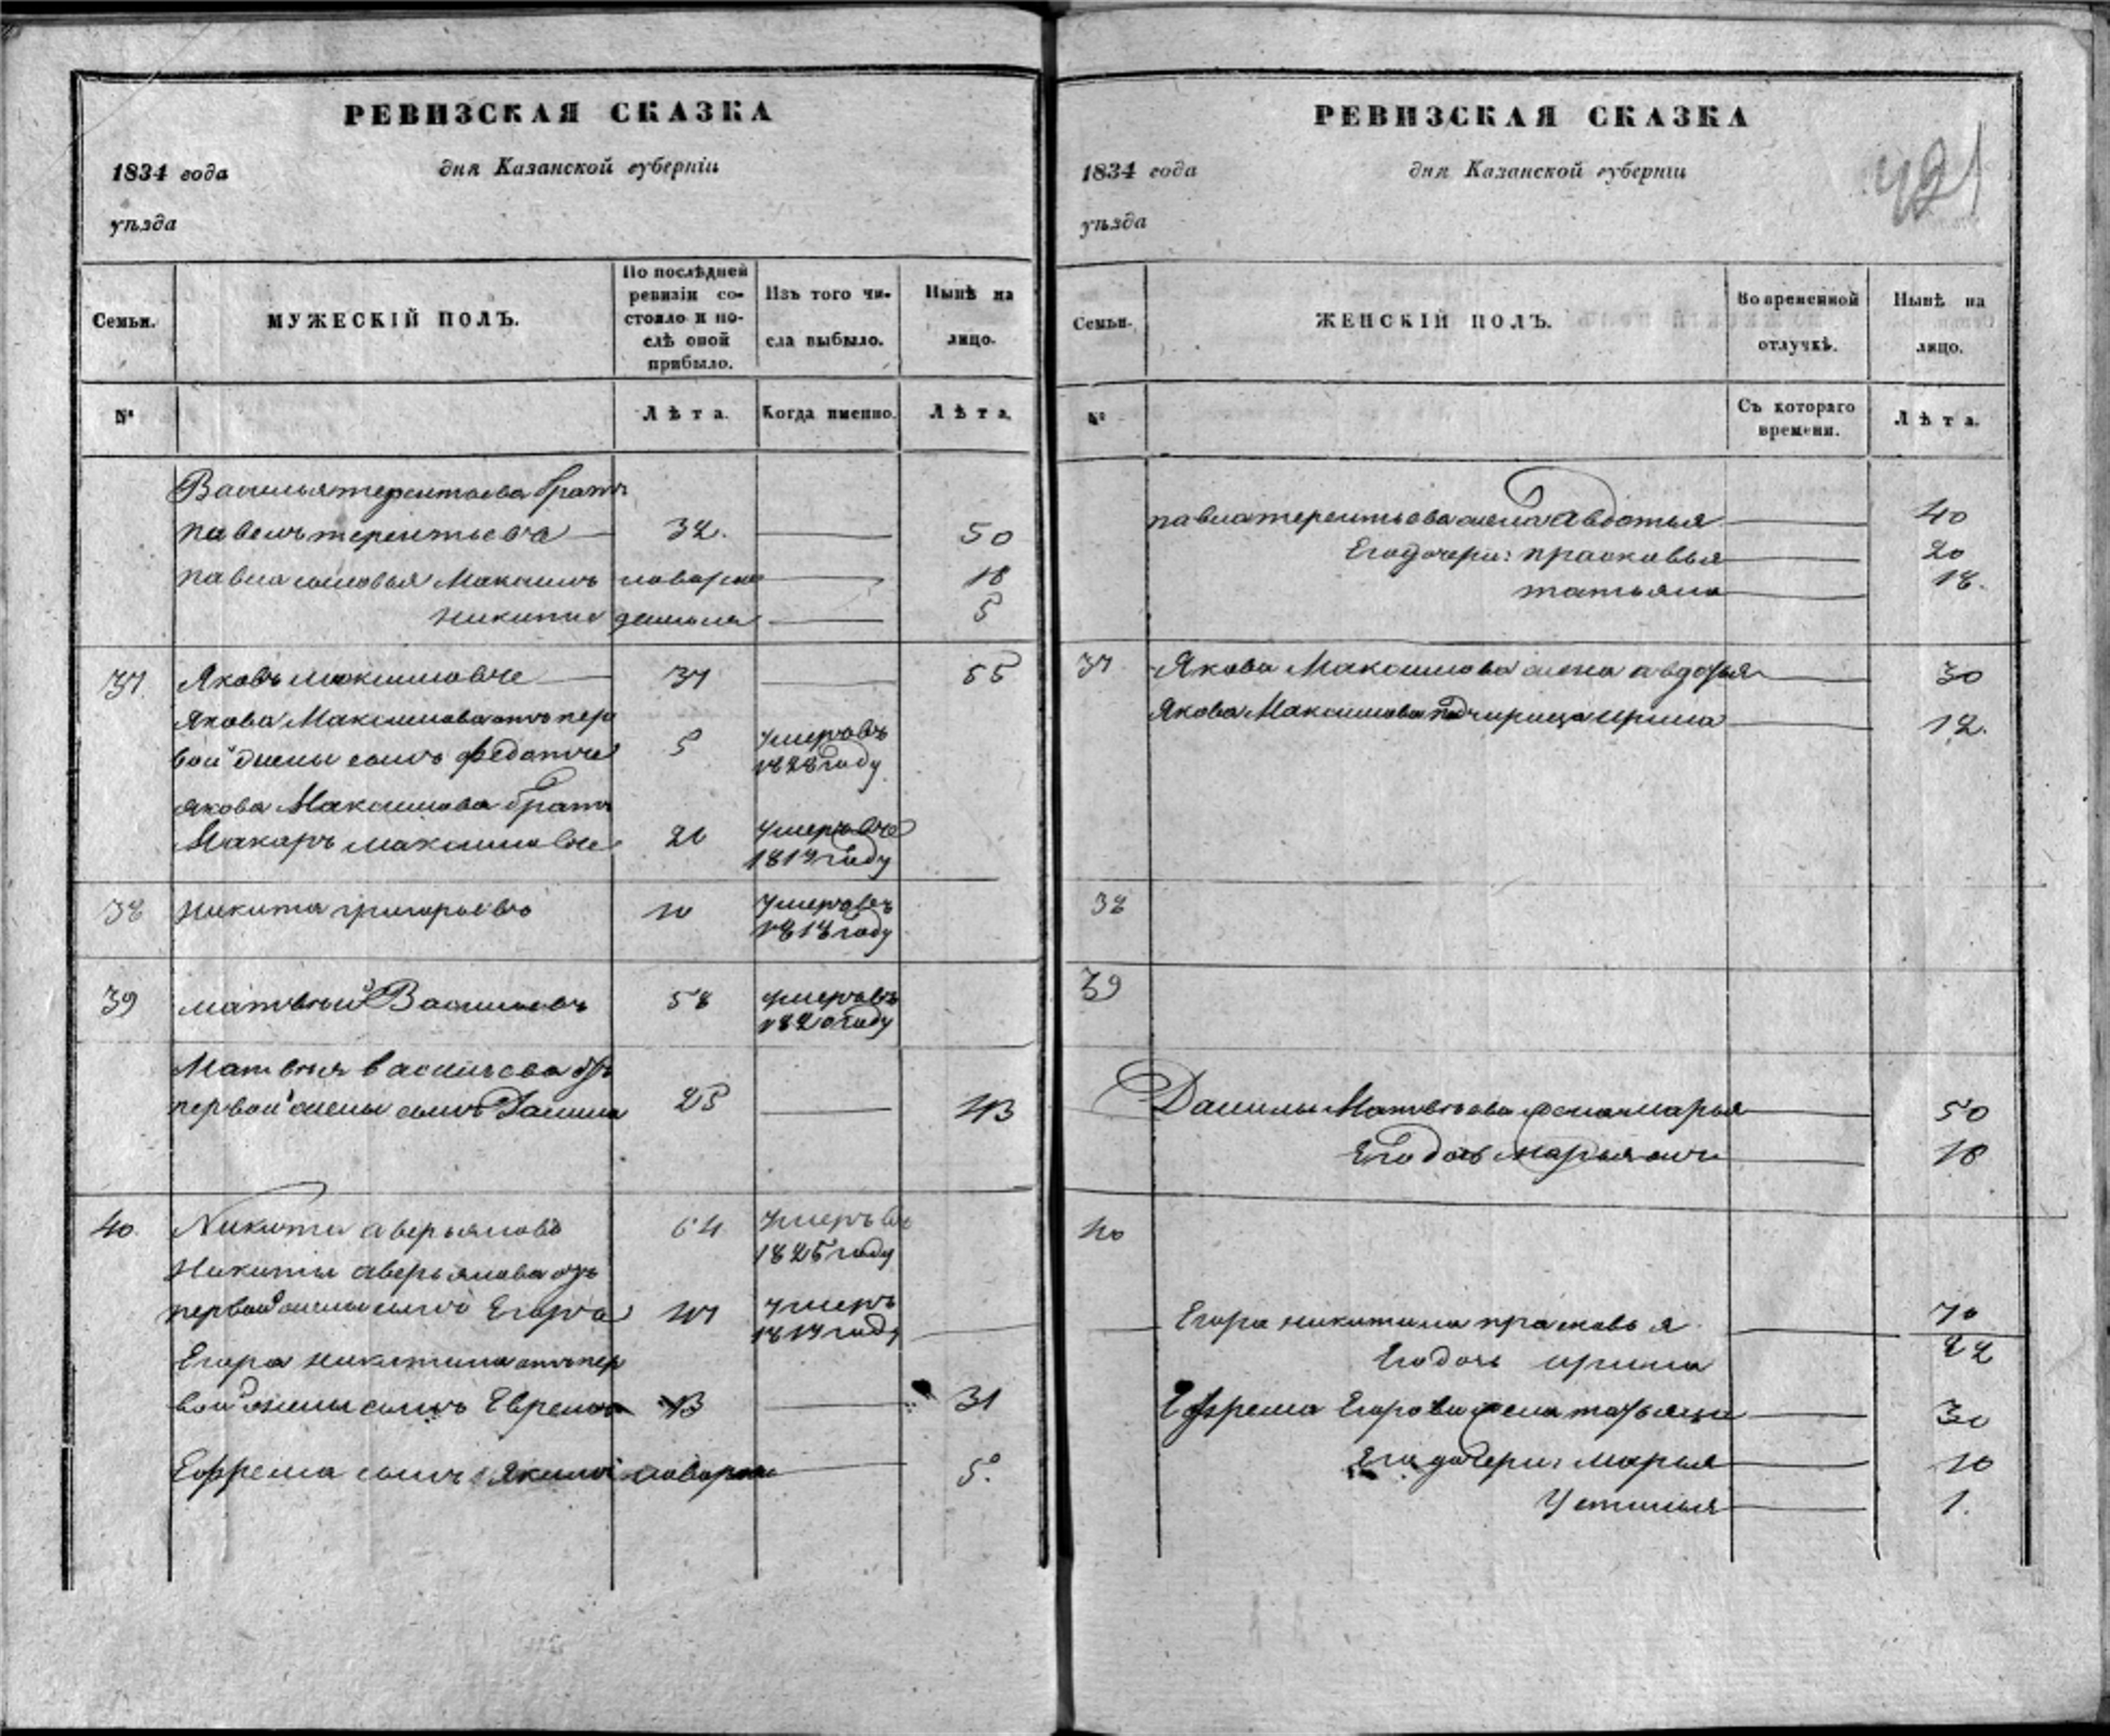 РЕВИЗСКАЯ СКАЗКА
1834 года дня Казанской губерніи
уѣзда
Семьи. МУЖЕСКІЙ ПОЛЪ. По послѣдней ревизіи состояло и послѣ оной прибыло. Изъ того числа выбыло. Нынѣ на лицо.
№ Лѣта. Когда именно. Лѣта.
Василья терентьева братъ
павелъ терентьевъ 32. 50
павла сыновья Максимъ новорож 18
никита 5
37. Яковъ максимовъ 37 55
Якова Максимова отъ пер
вой жены сынъ Федотъ 5 умеръ въ
1828 году
якова Максимова братъ
Макаръ максимовъ 20 умеръ въ
1819 году
38 никита григорьевъ 10 умеръ въ
1818 году
39 матвѣй Васильевъ 58 умеръ въ
1820 году
Матвѣя васильева отъ
первой жены сынъ Данила 25 43
40. Никита аверьяновъ 64 умеръ въ
1825 году
Никиты аверьянова отъ
первой жены сынъ Егоръ 47 умеръ
году
Егора никитина отъ пер
вой жены сынъ Евремъ 13 31
Ефрема сынъ Якимъ новорож 5.
РЕВИЗСКАЯ СКАЗКА
1834 года дня Казанской губерніи
уѣзда
421
Семьи. ЖЕНСКІЙ ПОЛЪ. Во временной отлучкѣ. Нынѣ на лицо.
№ Съ котораго времени. Лѣта.
павла терентьева жена Авдотья 40
Его дочери: прасковья 20
татьяна 18.
37 Якова Максимова жена авдотья 30
Якова Максимова падчирица ирина 12.
38
39
Данилы Матвѣева жена марья 50
Его дочь Марья 18
40
Егора никитина прасковья 70
Его дочь ирина 22
Ефрема Егорова жена татьяна 30
Его дочери: Марья 10
Устинья 1.